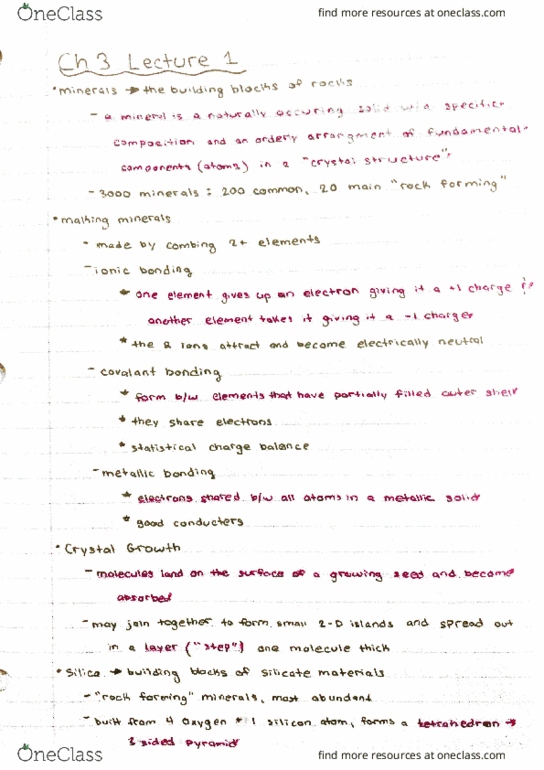 OneClass
find more resources at oneclass.com
Ch 3 Lecture 1
•minerals → the building blocks of rocks
- a mineral is a naturally occuring solid w/a specific
composition and an orderly arrangment of fundamental
components (atoms) in a "crystal structure"
- 3000 minerals : 200 common, 20 main "rock forming"
• making minerals
• made by combing 2+ elements
- ionic bonding
* one element gives up an electron giving it a +1 charge &
another element takes it giving it a -1 charge
* the 2 ions attract and become electrically neutral
- covalant bonding
* form b/w elements that have partially filled outer shell
* they share electrons
* statistical charge balance
- metallic bonding
* electrons shared b/w all atoms in a metallic solid
* good conducters
• Crystal Growth
- molecules land on the surface of a growing seed and become
absorbed
- may join together to form small 2-D islands and spread out
in a layer ("step") one molecule thick
• Silica → building blocks of silicate materials
- "rock forming" minerals, most abundant
- built from 4 oxygen + 1 silicon atom, forms a tetrahedron →
sided pyramid
OneClass
find more resources at oneclass.com